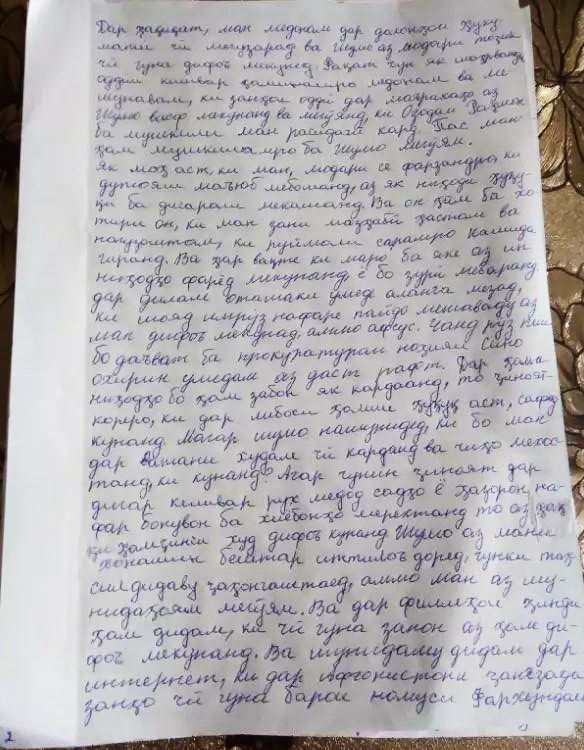 Дар ҳақиқат, ман медонам дар долонҳои ҳуку-
мати чӣ мегузарад ва Шумо аз модари тоҷик
чӣ гуна дифоъ мекунед. Фақат чун як шаҳрванди
оддии кишвар ҳаминашро медонам ва ме-
шунавам, ки занҳои оддӣ дар маъракаҳо аз
Шумо васф мекунанд ва мегӯянд, ки Озодаи Раҳмон
ба мушкили ман расидагӣ кард. Пас ман
ҳам мушкиламро ба Шумо мегӯям.
Як моҳ аст, ки ман, модари се фарзандро, ки
дутояш маъюб мебошанд, аз як ниҳоди ҳуқу-
қӣ ба дигараш мекашанд. Ва он ҳам ба хо-
тири он, ки ман зани мазҳабӣ ҳастам ва
нагузоштам, ки рӯймоли сарамро кашида
гиранд. Ва ҳар вақте ки маро ба яке аз ин
ниҳодҳо фарёд мекунанд ё бо зӯрӣ мебаранд,
дар дилам оташаки умед аланга мезад,
ки шояд имрӯз нафаре пайдо мешаваду аз
ман дифоъ мекунад, аммо афсӯс. Чанд рӯз пеш
бо даъват ба прокуратураи ноҳияи Сино
охирин умедам аз даст рафт. Дар ҳама
ниҳодҳо бо ҳам забон як кардаанд, то ҷиноят-
кореро, ки дар либоси ҳомии ҳуқуқ аст, сафед
кунанд. Магар шумо намешунидед, ки бо ман
дар ватани худам чӣ карданд ва чиҳо мехос-
танд, ки кунанд? Агар чунин ҷиноят дар
дигар кишвар рух медод садҳо ё ҳазорон на-
фар бонувон ба хиёбонҳо мерехтанд то аз ҳақ-
қи ҳамҷинси худ дифоъ кунанд. Шумо аз мани
хонашин бештар иттилоъ доред, чунки таҳ-
силдидаву ҷаҳонгаштаед, аммо ман аз шу-
нидаҳоям мегӯям. Ва дар филмҳои ҳинди
ҳам дидам, ки чӣ гуна занон аз ҳам ди-
фоъ мекунанд. Ва шунидаму дидам дар
интернет, ки дар Афғонистони ҷангзада
занҳо чӣ гуна барои номуси Фархундаи
2